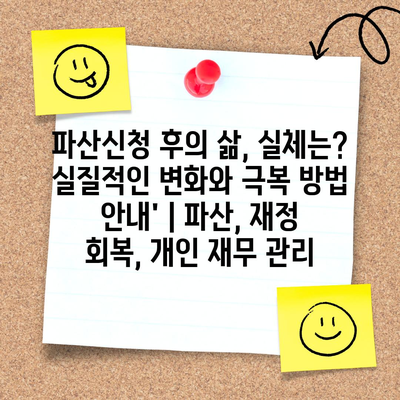 파산신청 후의 삶, 실체는?
실질적인 변화와 극복 방법
안내' | 파산, 재정
회복, 개인 재무 관리